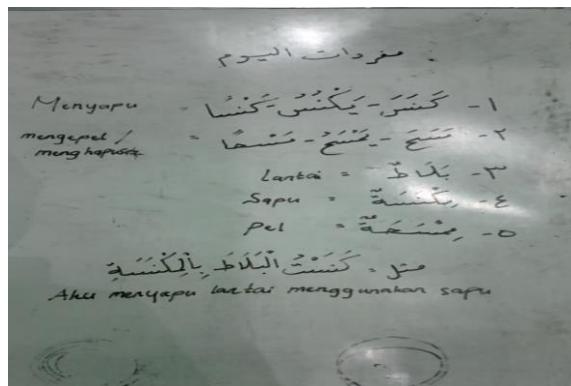 مفردات اليوم
١- كَنَسَ - يَكْنُسُ - كَنْسًا = Menyapu
٢- مَسَحَ - يَمْسَحُ - مَسْحًا = mengepel / menghapus
٣- بَلَاطٌ = Lantai
٤- مِكْنَسَةٌ = Sapu
٥- مِمْسَحَةٌ = Pel
مثل = كَنَسْتُ الْبَلَاطَ بِالْمِكْنَسَةِ
Aku menyapu lantai menggunakan sapu